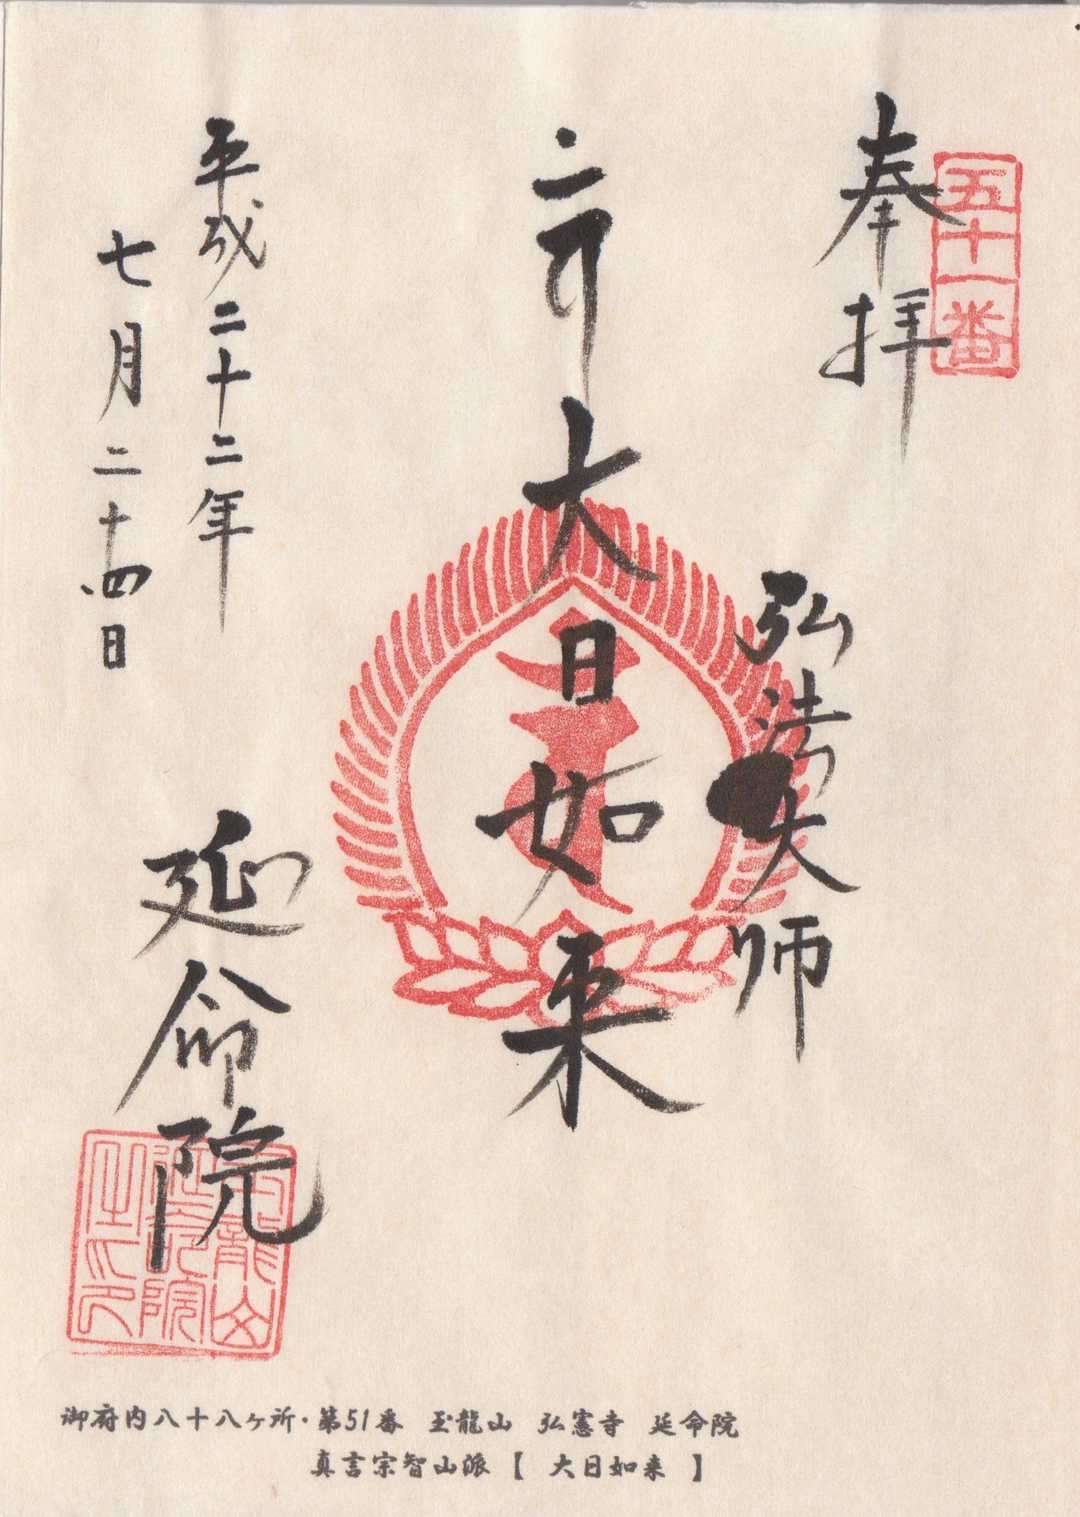 五十一番
奉拝
弘法大師
大日如来
平成二十二年
七月二十四日
延命院
御府内八十八ヶ所・第51番 玉龍山 弘憲寺 延命院
真言宗智山派 【 大日如来 】